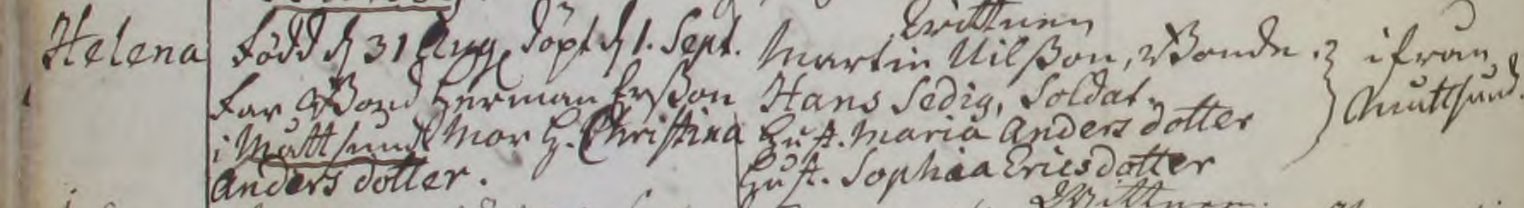 Helena
född d 31 Aug. döpt d 1. Sept.
far Bond Herman Erßon
i Mattsund Mor H. Christina
Anders dotter.
Wittnen
Martin Nilßon, Bonde.
Hans Sedig, Soldat.
Hust. Maria Anders dotter
Hust. Sophia Ericsdotter
ifrån
Muttsund.
Wittnen